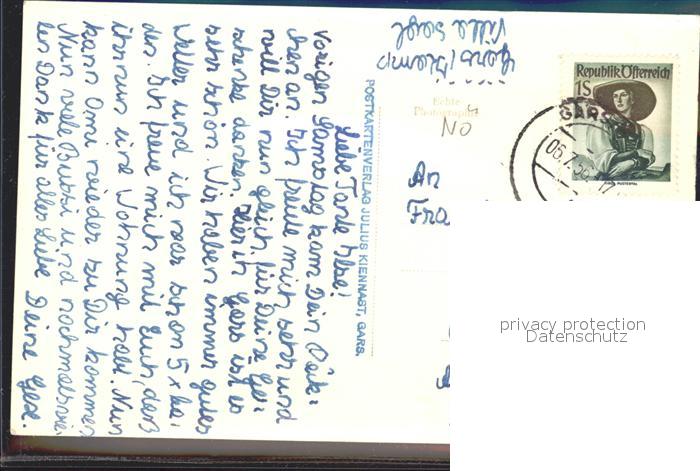 Gars / Kamp
Villa
Liebe Tante Ilse!
Vorigen Samstag kam Dein Päck-
chen an. Ich freue mich sehr und
will Dir nun gleich für Deine Ge-
schenke danken. Hier in Gars ist es
sehr schön. Wir haben immer gutes
Wetter und ich war schon 5 x ba-
den. Ich freue mich mit Euch, daß
ihr nun eine Wohnung habt. Nun
kann Omi wieder zu Dir kommen
Nun viele Bussi und nochmals vie-
len Dank für alles Liebe Deine
POSTKARTENVERLAG JULIUS KIENNAST, GARS.
Echte
Photographie
NÖ
Republik Österreich
1S
GARS
An
Fra
privacy protection
Datenschutz